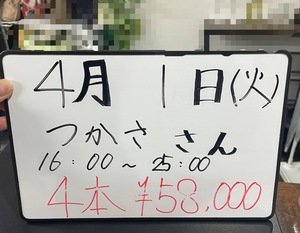 4月 1日(火)
つかさ さん
16:00〜25:00
4本 ¥58,000